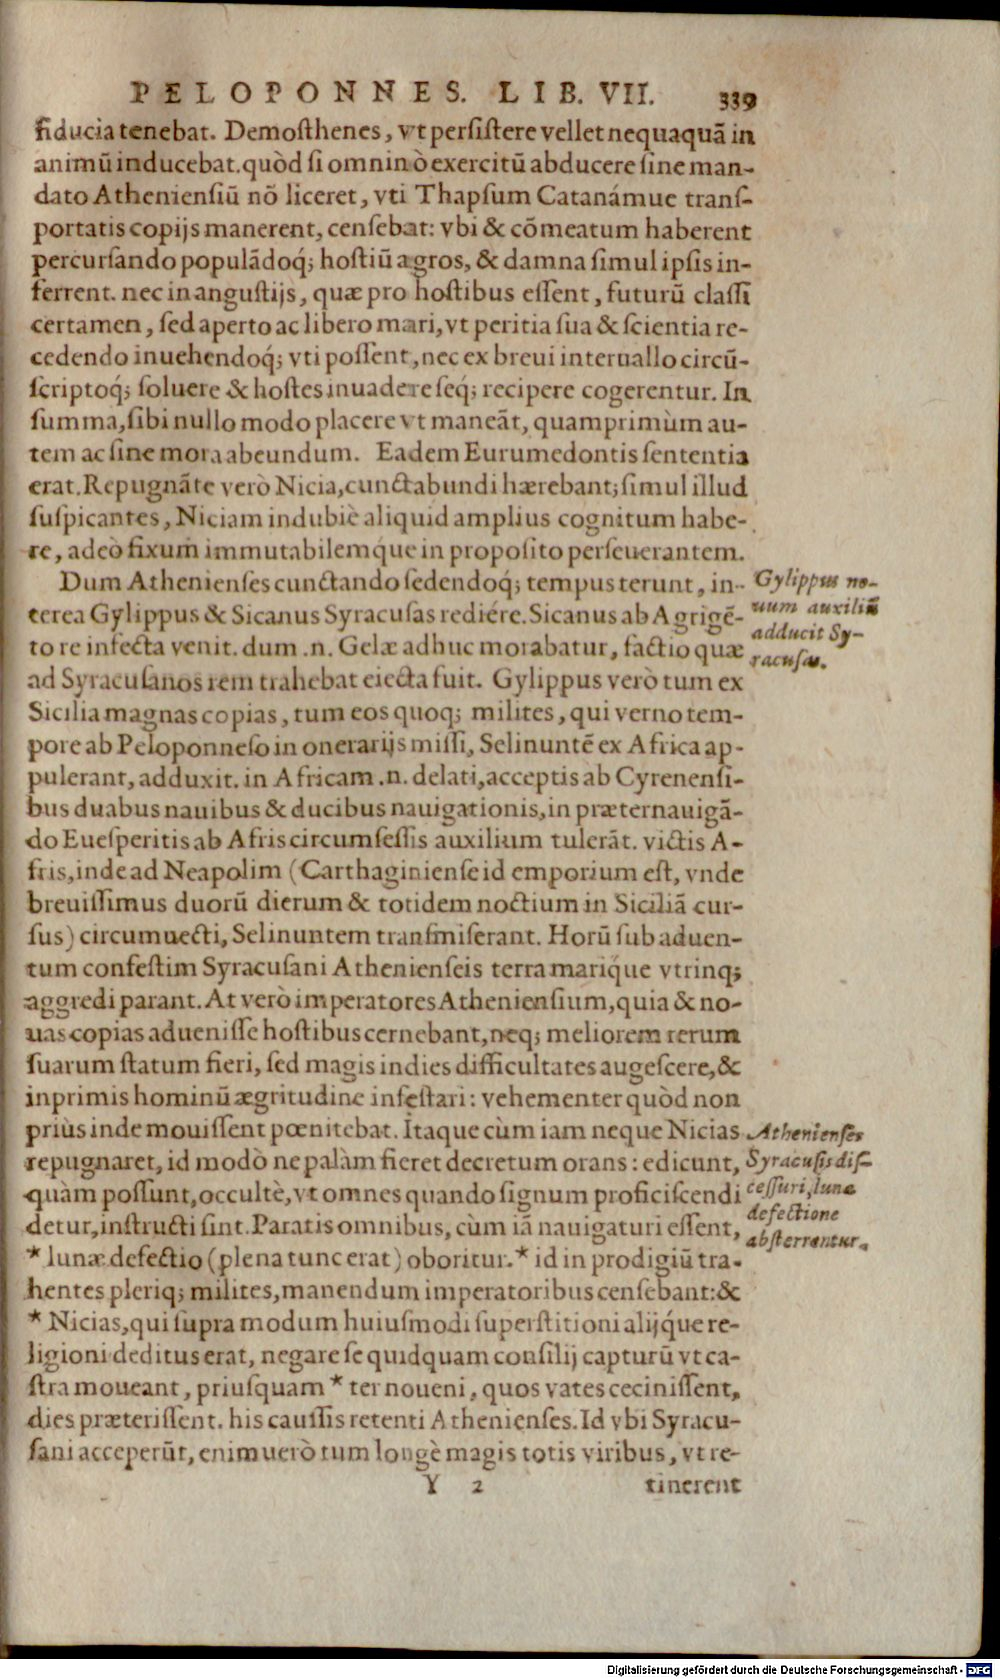 PELOPONNES. LIB. VII. 339
fiducia tenebat. Demosthenes, vt persistere vellet nequaquã in
animũ inducebat. quòd si omninò exercitũ abducere sine man-
dato Atheniensiũ nõ liceret, vti Thapsum Catanámue trans-
portatis copijs manerent, censebat: vbi & cõmeatum haberent
percursando populãdoq́; hostiũ agros, & damna simul ipsis in-
ferrent. nec in angustijs, quæ pro hostibus essent, futurũ classi
certamen, sed aperto ac libero mari, vt peritia sua & scientia re-
cedendo inuehendoq́; vti possent, nec ex breui interuallo circũ-
scriptoq́; soluere & hostes inuadere seq́; recipere cogerentur. In
summa, sibi nullo modo placere vt maneãt, quamprimùm au-
tem ac sine mora abeundum. Eadem Eurumedontis sententia
erat. Repugnãte verò Nicia, cunctabundi hærebant; simul illud
suspicantes, Niciam indubiè aliquid amplius cognitum habe-
re, adeò fixum immutabilemq́ue in proposito perseuerantem.
Dum Athenienses cunctando sedendoq́; tempus terunt, in-
terea Gylippus & Sicanus Syracusas rediére. Sicanus ab Agrigẽ-
to re infecta venit. dum .n. Gelæ adhuc morabatur, factio quæ
ad Syracusanos rem trahebat eiecta fuit. Gylippus verò tum ex
Sicilia magnas copias, tum eos quoq; milites, qui verno tem-
pore ab Peloponneso in onerarijs missi, Selinuntẽ ex Africa ap-
pulerant, adduxit. in Africam .n. delati, acceptis ab Cyrenensi-
bus duabus nauibus & ducibus nauigationis, in præternauigã-
do Euesperitis ab Afris circumsessis auxilium tulerãt. victis A-
fris, inde ad Neapolim (Carthaginiense id emporium est, vnde
breuissimus duorũ dierum & totidem noctium in Siciliã cur-
sus) circumuecti, Selinuntem transmiserant. Horũ sub aduen-
tum confestim Syracusani Athenienseis terra mariq́ue vtrinq;
aggredi parant. At verò imperatores Atheniensium, quia & no-
uas copias aduenisse hostibus cernebant, neq; meliorem rerum
suarum statum fieri, sed magis indies difficultates augescere, &
inprimis hominũ ægritudine infestari: vehementer quòd non
priùs inde mouissent pœnitebat. Itaque cùm iam neque Nicias
repugnaret, id modò ne palàm fieret decretum orans: edicunt,
quàm possunt, occultè, vt omnes quando signum proficiscendi
detur, instructi sint. Paratis omnibus, cùm iã nauigaturi essent,
* lunæ defectio (plena tunc erat) oboritur. * id in prodigiũ tra-
hentes pleriq; milites, manendum imperatoribus censebant: &
* Nicias, qui supra modum huiusmodi superstitioni alijq́ue re-
ligioni deditus erat, negare se quidquam consilij capturũ vt ca-
stra moueant, priusquam * ter noueni, quos vates cecinissent,
dies præterissent. his caussis retenti Athenienses. Id vbi Syracu-
sani acceperũt, enimuerò tum longè magis totis viribus, vt re-
Y 2 tinerent
Gylippus no-
uum auxiliũ
adducit Sy-
racusas.
Athenienses
Syracusis dis-
cessuri, lunæ
defectione
absterrentur.
Digitalisierung gefördert durch die Deutsche Forschungsgemeinschaft - DFG